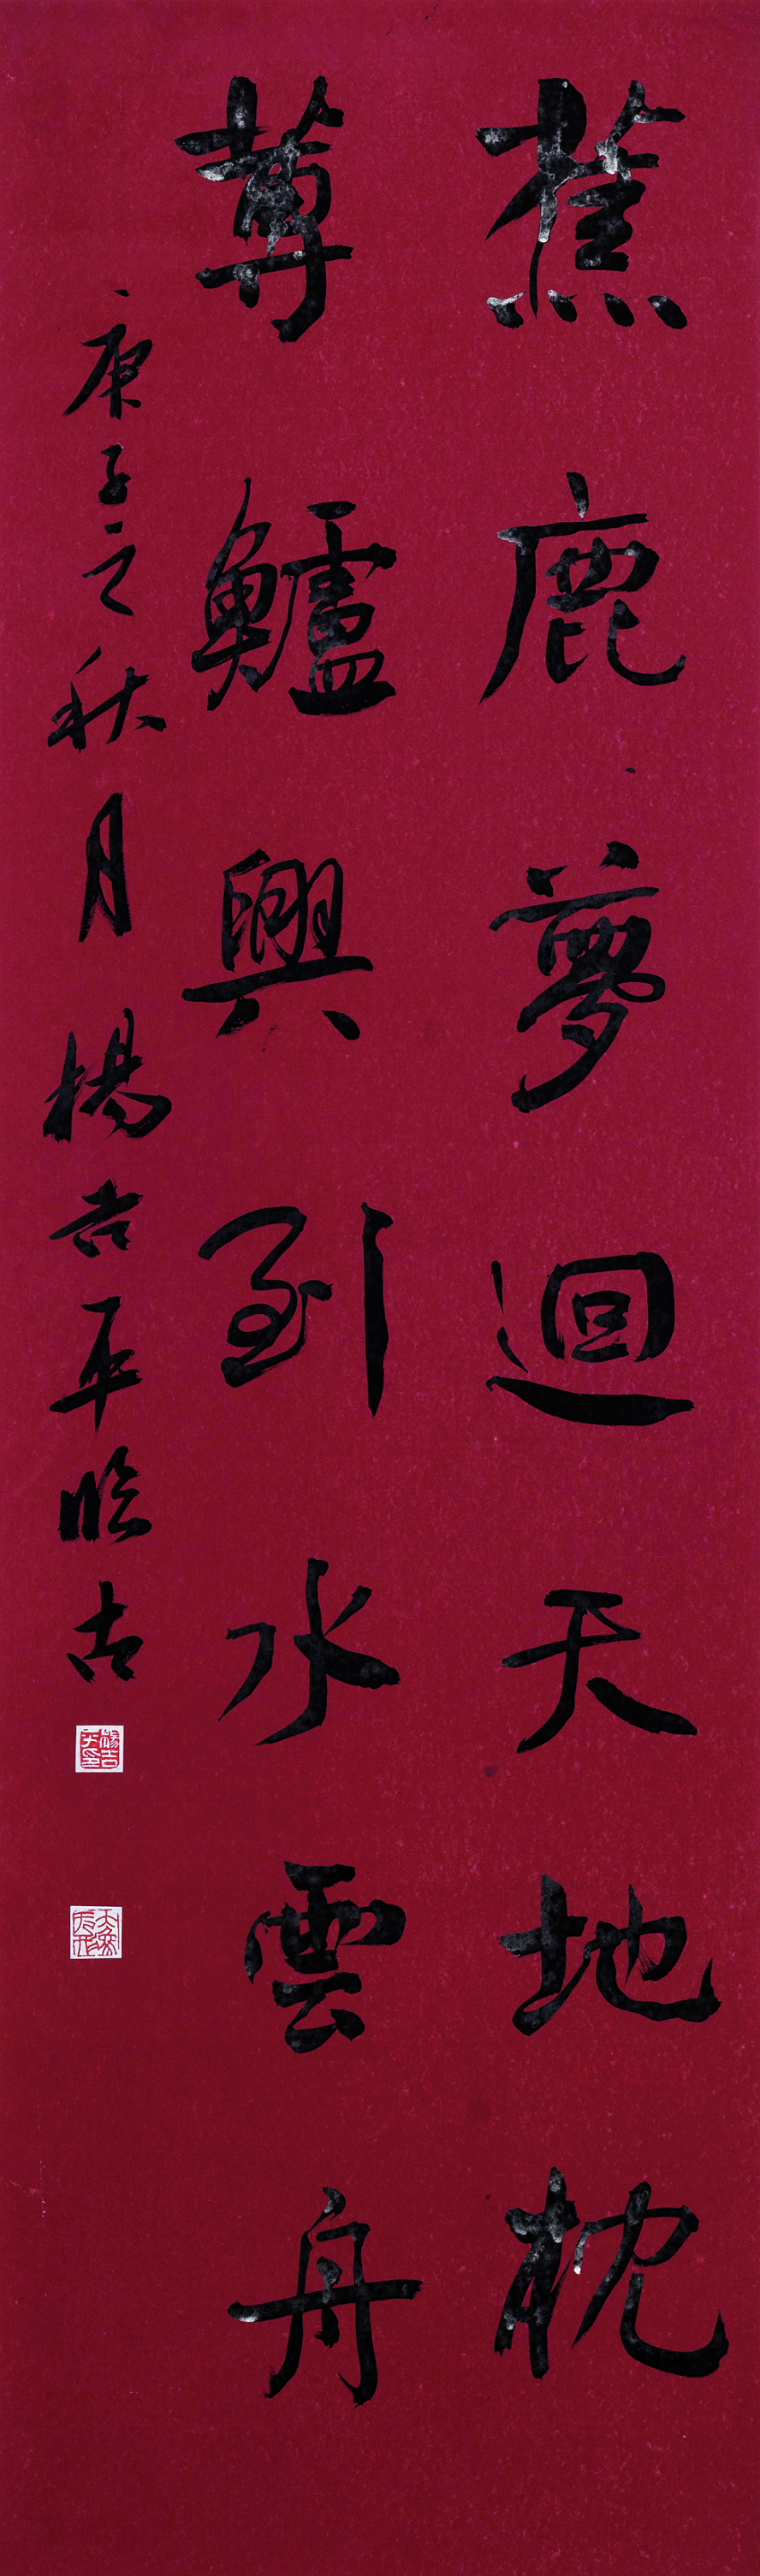 蕉鹿夢迴天地枕
蓴鱸興到水雲舟
庚子之秋月楊吉平臨古
楊吉平印